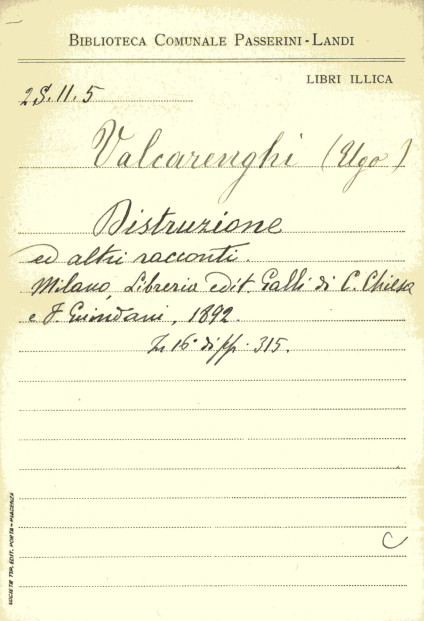 BIBLIOTECA COMUNALE PASSERINI-LANDI
LIBRI ILLICA
2S.II.5
Valcarenghi (Ugo)
Distruzione
ed altri racconti.
Milano, Libreria edit Galli di C. Chiesa
e F. Guindani, 1892.
In 16° di pp. 315.
C
SOCIETÀ TIP. EDIT. PORTA-PIACENZA